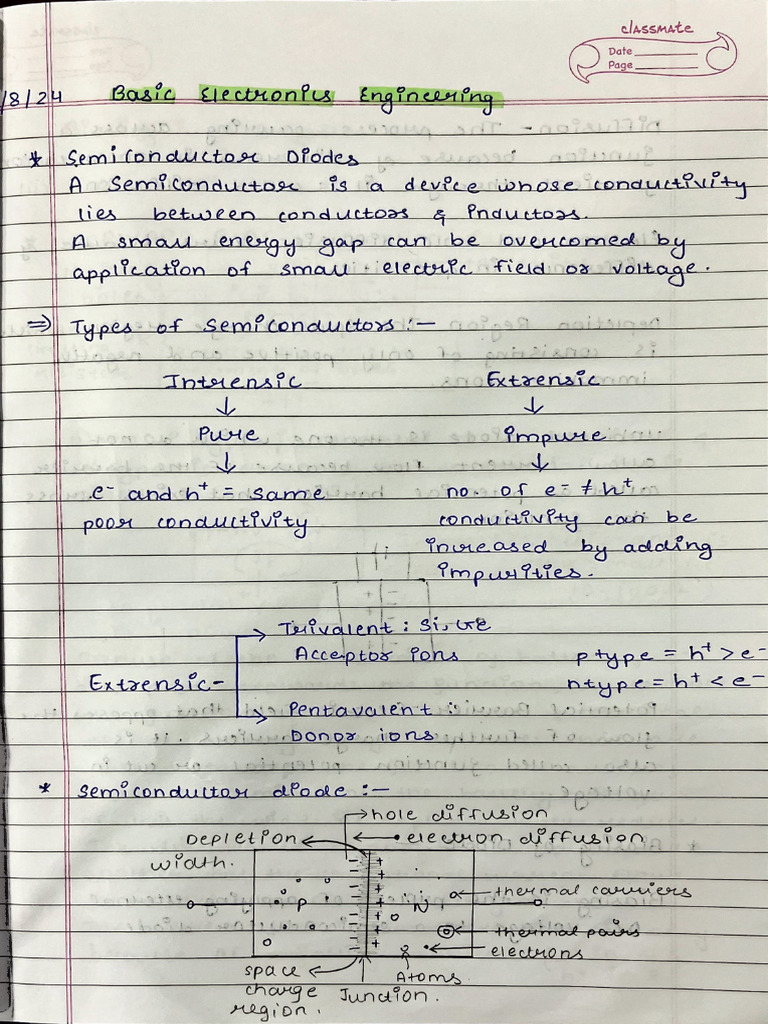 classmate
Date
Page
/8/24 Basic Electronics Engineering
* Semiconductor Diodes
A Semiconductor is a device whose conductivity
lies between conductors & inductors.
A small energy gap can be overcomed by
application of small electric field or voltage.
⇒ Types of Semiconductors :-
Intrensic Extrensic
↓ ↓
Pure impure
↓ ↓
e⁻ and h⁺ = same no. of e⁻ ≠ h⁺
poor conductivity conductivity can be
increased by adding
impurities.
Trivalent : Si, Ge
Acceptor ions p type = h⁺ > e⁻
Extrensic- n type = h⁺ < e⁻
Pentavalent :
Donor ions
* Semiconductor diode :-
hole diffusion
Depletion electron diffusion
width.
thermal carriers
P N
thermal pairs
electrons
space Atoms
charge Junction.
region.